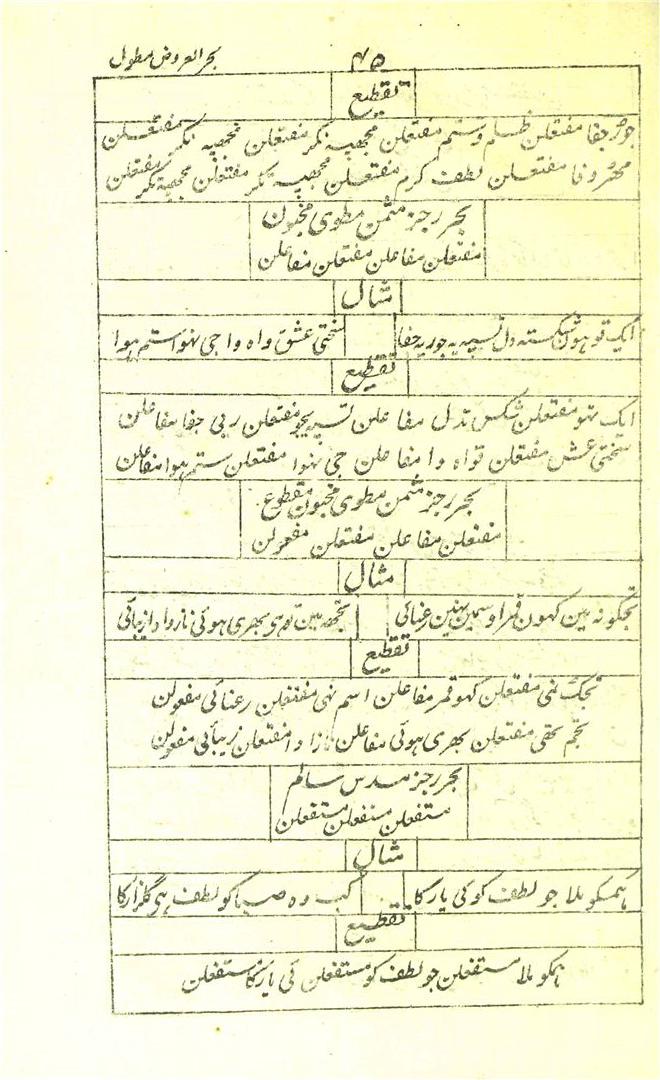 بحر العروض مطول
۴۵
تقطیع
جورُ جفا مفتعلن ظلم و ستم مفتعلن مجھپہ نکر مفتعلن مجھپہ نکر مفتعلن
مھرُ وفا مفتعلن لطف کرم مفتعلن مجھپہ نکر مفتعلن مجھپہ نکر مفتعلن
بحر رجز مثمن مطوی مخبون
مفتعلن مفاعلن مفتعلن مفاعلن
مثال
ایک تو ہون شکستہ دل تسپہ یہ جور یہ جفا
سختی عشق واہ وا جی نہوا ستم ہوا
تقطیع
ایک تہو مفتعلن شکس تدل مفاعلن تسپہ یجو مفتعلن ریی جفا مفاعلن
سختیٔ عش مفتعلن قواہ وا مفاعلن جی نہوا مفتعلن ستم ہوا مفاعلن
بحر رجز مثمن مطوی مخبون مقطوع
مفتعلن مفاعلن مفتعلن مفعولن
مثال
تجکو نہ مین کہون قمر اوسمین نہین رعنائی
تجھ مین تھری بھری ہوئی ناز و ادا زیبائی
تقطیع
تجک نمی مفتعلن کہو قمر مفاعلن اسم نہی مفتعلن رعنائی مفعولن
تجم تھی مفتعلن بھری ہوئی مفاعلن ناز ادا مفتعلن زیبائی مفعولن
بحر رجز مسدس سالم
مستفعلن مستفعلن مستفعلن
مثال
ہمکو ملا جو لطف کوئی یار کا
کب وہ صبا کو لطف ہی گلزار کا
تقطیع
ہمکو ملا مستفعلن جو لطف کو مستفعلن ئی یار کا مستفعلن